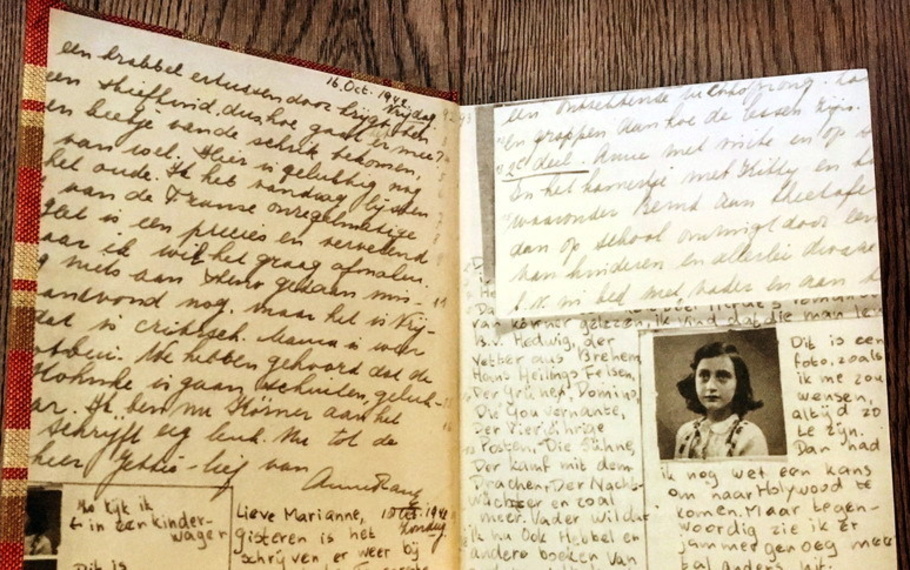 16 Oct. 1942.
Vrijdag
een krabbel ertussen door krijgt het
een stiefkind, dus hoe gaat er mee?
en beetje van de schrik bekomen,
van wel. Hier is gelukkig nog
het oude. Ik heb vandaag lijsten
van de Franse onregelmatige
Het is een precies en vervelend
aar ik wil het graag afmaken.
niets aan Steno gedaan mis-
andvond nog, maar het is Vrij-
dat is critisch. Mama is weer
We hebben gehoord dat de
is gaan schuilen, geluk-
ar. Ik ben nu Körner aan het
schrijft erg leuk. Nu tot de
keer Jettie-lief van
Anne Frank
Ho kijk ik
in een kinder-
wager
Dit is
Lieve Marianne,
10 Oct. 1942
Zondag.
Gisteren is het
schrijven er weer bij
een ontzettende
en grappen aan hoe de lessen zijn.
2e deel. Anne met
In het kamertje met Kitty en
waaronder Bernd aan theetafel
dan op school omringd door een
van kinderen en allerlei dwaze
b.v. in bed met vader en aan
van körner gelezen, ik vind dat die man
B.v. Hedwig, der
Vetter aus Brehem
Hans Heilings Felsen,
Der Grüned, Domino,
Die Gouvernante,
Der Vierjährige
Posten, Die Sühne,
Der kamf mit dem
Drachen, Der Nacht-
wächter en zoal
meer. Vader wil dat
ik nu Ook Hebbel en
andere boeken van
Dit is een
foto, zoals
ik me zou
wensen,
altijd zo
te zijn.
Dan had
ik nog wel een kans
om naar Holywood te
komen. Maar tegen-
woordig zie ik er
jammer genoeg mee
tal anders uit.